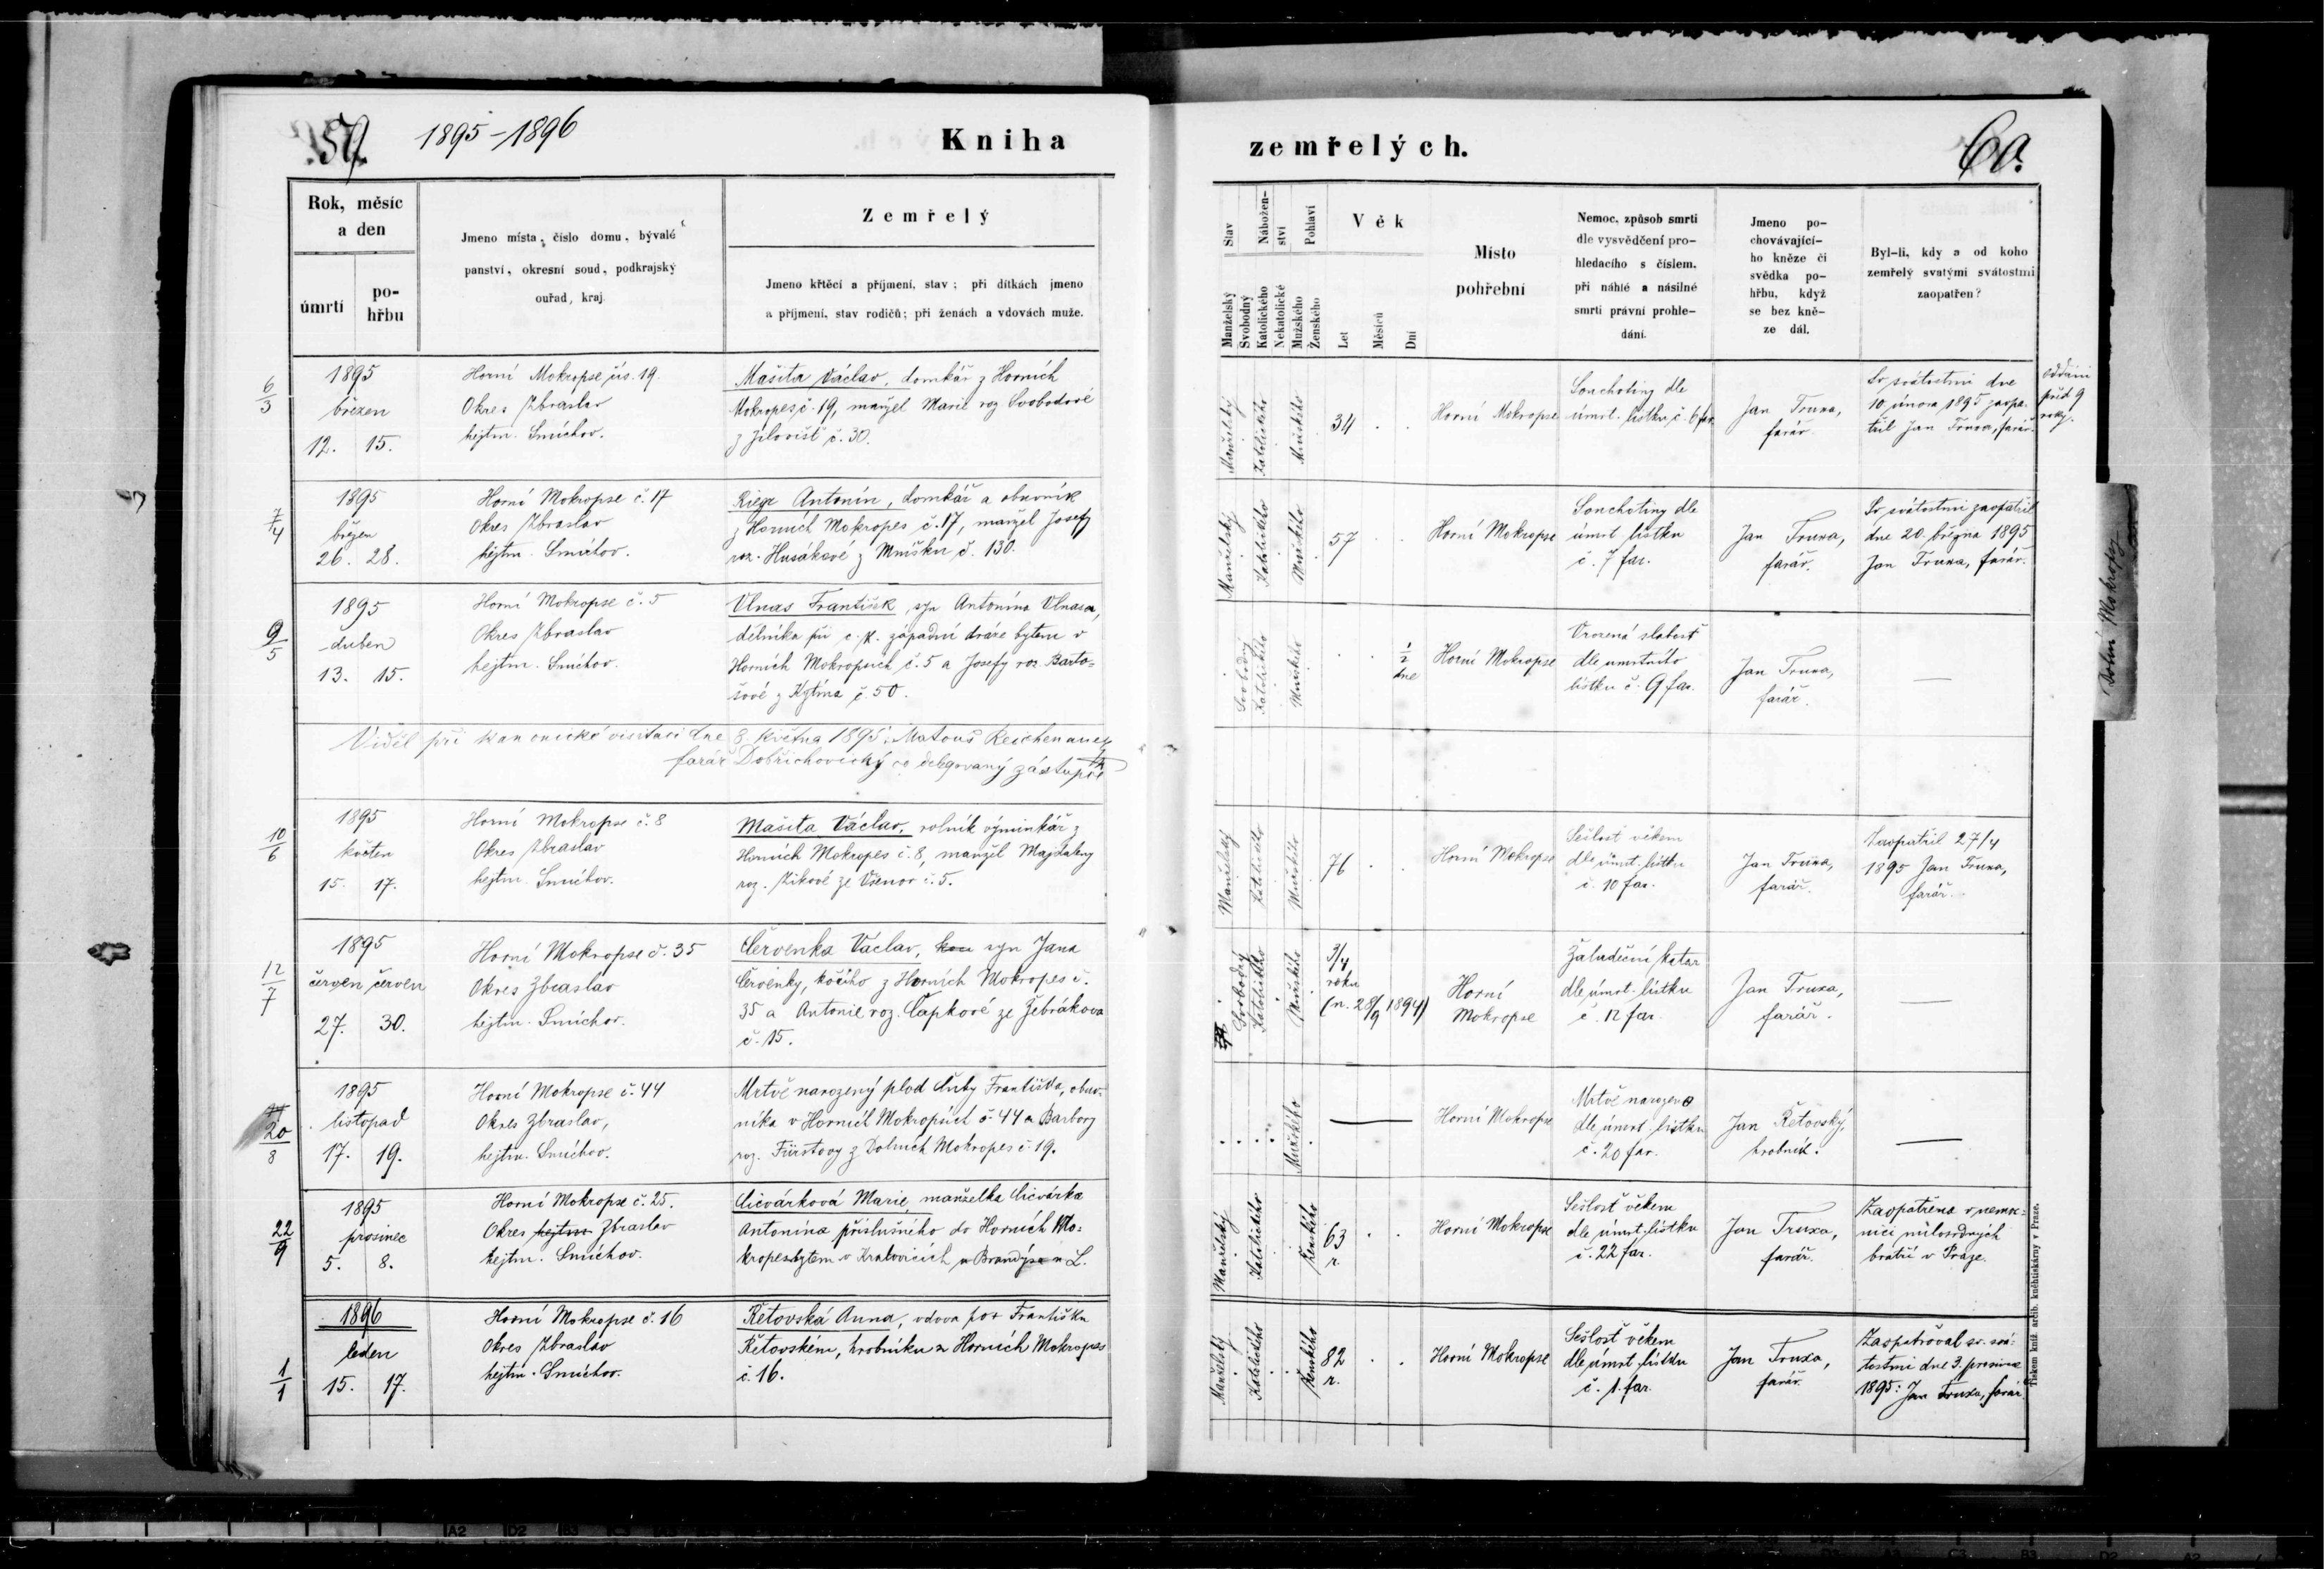 59.
1895-1896
Kniha
zemřelých.
60.
Rok, měsíc
a den
úmrtí
po-
hřbu
Jmeno místa, číslo domu, bývalé
panství, okresní soud, podkrajský
ouřad, kraj.
Zemřelý
Jmeno křtěcí a příjmení, stav; při dítkách jmeno
a příjmení, stav rodičů; při ženách a vdovách muže.
Stav
Manželský
Svobodný
Nábožen-
ství
Katolického
Nekatolické
Pohlaví
Mužského
Ženského
Věk
Let
Měsíců
Dní
Místo
pohřební
Nemoc, způsob smrti
dle vysvědčení pro-
hledacího s číslem,
při náhlé a násilné
smrti právní prohle-
dání.
Jmeno po-
chovávající-
ho kněze či
svědka po-
hřbu, když
se bez kně-
ze dál.
Byl-li, kdy a od koho
zemřelý svatými svátostmi
zaopatřen?
6/3
1895
březen
12. 15.
Horní Mokropse čís. 19.
Okres Zbraslav
hejtm. Smíchov.
Mašita Václav, domkář z Horních
Mokropes, č. 19, manžel Marie roz Svobodové
z Jíloviště č. 30.
Manželský
Katolického
Mužského
34
Horní Mokropse
Souchotiny dle
úmrt. lístku č. 6 far.
Jan Truxa,
farář.
Sv. svátostmi dne
10. února 1895 zaopa-
třil Jan Truxa, farář.
oddáni
před 9
roky.
7/4
1895
březen
26. 28.
Horní Mokropse č. 17
Okres Zbraslav
hejtm. Smíchov.
Antonín, domkář a obuvník
z Horních Mokropes č. 17, manžel Josefy
roz. Husákové z Mníšku č. 130.
Manželský
Katolického
Mužského
57
Horní Mokropse
Souchotiny dle
úmrt lístku
č. 7 far.
Jan Truxa,
farář.
Sv. svátostmi zaopatřil
dne 20. března 1895
Jan Truxa, farář.
9/5
1895
duben
13. 15.
Horní Mokropse č. 5
Okres Zbraslav
hejtm. Smíchov.
Vlnas František, syn Antonína Vlnasa,
dělníka při c. k. západní dráze bytem v
Horních Mokropsích č. 5 a Josefy roz. Barto-
šové z Kytína č. 50.
Svobodný
Katolického
Mužského
1/2
dne
Horní Mokropse
Vrozená slabost
dle úmrtního
lístku č. 9 far.
Jan Truxa,
farář.
—
Viděl při kanonické visitaci dne 8. května 1895: Matouš
farář Dobřichovický co delegovaný zástupce
10/6
1895
květen
15. 17.
Horní Mokropse č. 8
Okres Zbraslav
hejtm. Smíchov.
Mašita Václav, rolník výminkář z
Horních Mokropes č. 8, manžel Majdaleny
roz. Zikové ze Všenor č. 5.
Manželský
Katolického
Mužského
76
Horní Mokropse
Sešlost věkem
dle úmrt. lístku
č. 10 far.
Jan Truxa,
farář.
Zaopatřil 27/4
1895 Jan Truxa,
farář.
12/7
1895
červen červen
27. 30.
Horní Mokropse č. 35
Okres Zbraslav
hejtm. Smíchov.
Červenka Václav, syn Jana
Červenky, kočího z Horních Mokropes č.
35 a Antonie roz. Čapkové ze Žebrákova
č. 15.
Svobodný
Katolického
Mužského
3/4
roku
(n. 28/9 1894)
Horní
Mokropse
Žaludeční katar
dle úmrt. lístku
č. 12 far.
Jan Truxa,
farář.
—
20/8
1895
listopad
17. 19.
Horní Mokropse č. 44
Okres Zbraslav,
hejtm. Smíchov.
Mrtvě narozený plod Čuby Františka, obuv-
níka v Horních Mokropsích č. 44 a Barbory
roz. Fürstovy z Dolních Mokropes č. 19.
Mužského
—
Horní Mokropse
Mrtvě narozeno
dle úmrt. lístku
č. 20 far.
Jan Řetovský,
hrobník.
—
22/9
1895
prosinec
5. 8.
Horní Mokropse č. 25.
Okres hejtm. Zbraslav
hejtm. Smíchov.
Čičvárková Marie, manželka Čičvárka
Antonína příslušného do Horních Mo-
kropes bytem v Královicích u Brandýsa n. L.
Manželský
Katolického
Ženského
63
r.
Horní Mokropse
Sešlost věkem
dle úmrt. lístku
č. 22 far.
Jan Truxa,
farář.
Zaopatřena v nemoc-
nici milosrdných
bratří v Praze.
1/1
1896
leden
15. 17.
Horní Mokropse č. 16
Okres Zbraslav
hejtm. Smíchov.
Řetovská Anna, vdova po + Františku
Řetovském, hrobníku z Horních Mokropes
č. 16.
Manželský
Katolického
Ženského
82
r.
Horní Mokropse
Sešlost věkem
dle úmrt. lístku
č. 1 far.
Jan Truxa,
farář.
Zaopatřoval sv. svá-
tostmi dne 3. prosince
1895: Jan Truxa, farář.
Tiskem kníž. arcib. kněhtiskárny v Praze.
Dolní Mokropsy